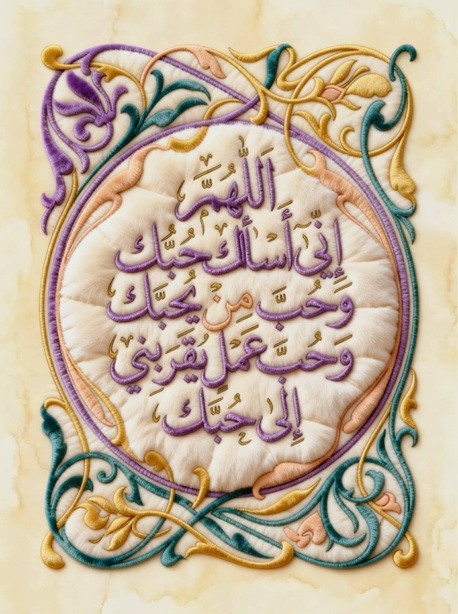 اللَّهُمَّ
إِنِّي أَسأَلك حُبُّك
وَحُبَّ مَن يُحِبَّك
وَحُبَّ عَمَلٍ يُقَرِّبُنِي
إِلَى حُبَّك